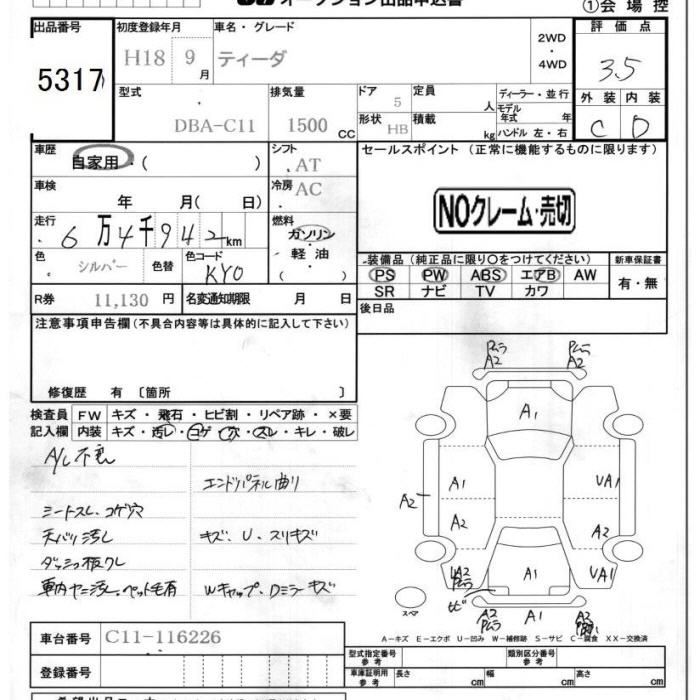 オークション出品申込書
①会場控
出品番号 初度登録年月 車名・グレード 2WD・4WD 評価点
5317 H18 9月 ティーダ 3.5
型式 排気量 ドア 定員 ディーラー・並行 外装 内装
DBA-C11 1500 CC 5 人 モデル年式 年 C D
形状 HB 積載 kg ハンドル 左・右
車歴 シフト セールスポイント (正常に機能するものに限ります)
自家用・( ) AT
車検 冷房 NOクレーム・売切
年 月( 日) AC
走行 燃料
6万4千942km ガソリン・軽油・( )
色 色替 色コード 装備品 (純正品に限り○をつけてください) 新車保証書
シルバー KYO PS PW ABS エアB AW 有・無
R券 11,130 円 名変通知期限 月 日 SR ナビ TV カワ
後日品
注意事項申告欄 (不具合内容等は具体的に記入して下さい)
修復歴 有 〔箇所 〕
検査員 FW キズ・飛石・ヒビ割・リペア跡・×要
記入欄 内装 キズ・汚レ・コゲ・穴・スレ・キレ・破レ
A/C不良
エンドパネル曲り
シートスレ、コゲ穴
天バリ汚し キズ、U、スリキズ
ダッシュ板クレ
車内ヤニ汚、ペット毛有 Wキャップ、Dミラーキズ
Pムラ A2 Pムラ A2
A1
A1 UA1
A2
A2 A2
A1 UA1
スペア サビ
A2 Pムラ A1 A2
A－キズ E－エクボ U－凹み W－補修跡 S－サビ C－腐食 XX－交換済
車台番号 C11-116226
登録番号
型式指定番号 参考 類別区分番号 参考
車庫証明用 参考 長さ cm 幅 cm 高さ cm